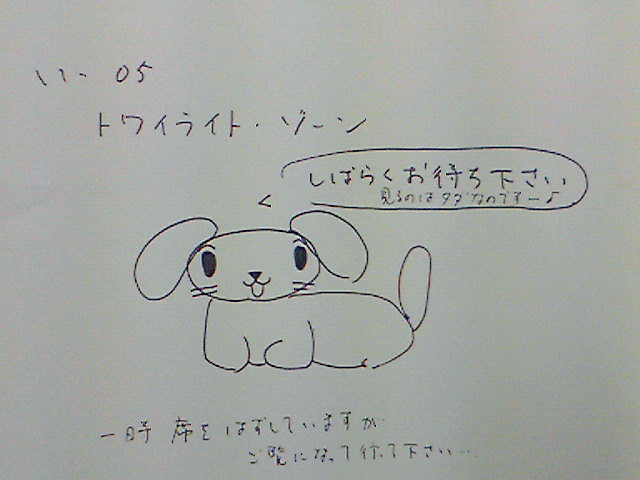 い - 05
トワイライト・ゾーン
しばらくお待ち下さい
見るのはタダなのですー♪
一時 席をはずしていますが
ご覧になって待って下さい…